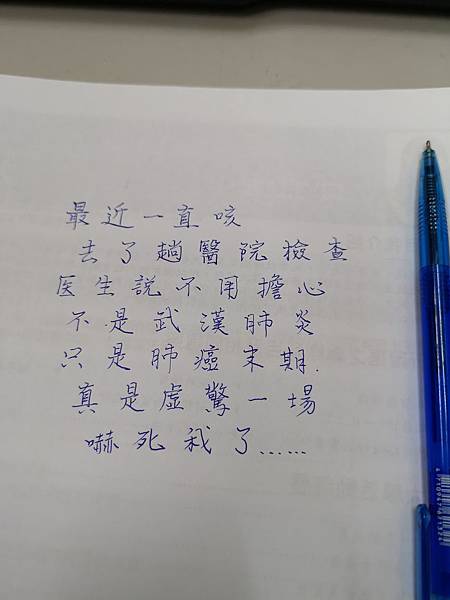 最近一直咳
去了趟醫院檢查
医生說不用擔心
不是武漢肺炎
只是肺癌末期.
真是虛驚一場
嚇死我了……